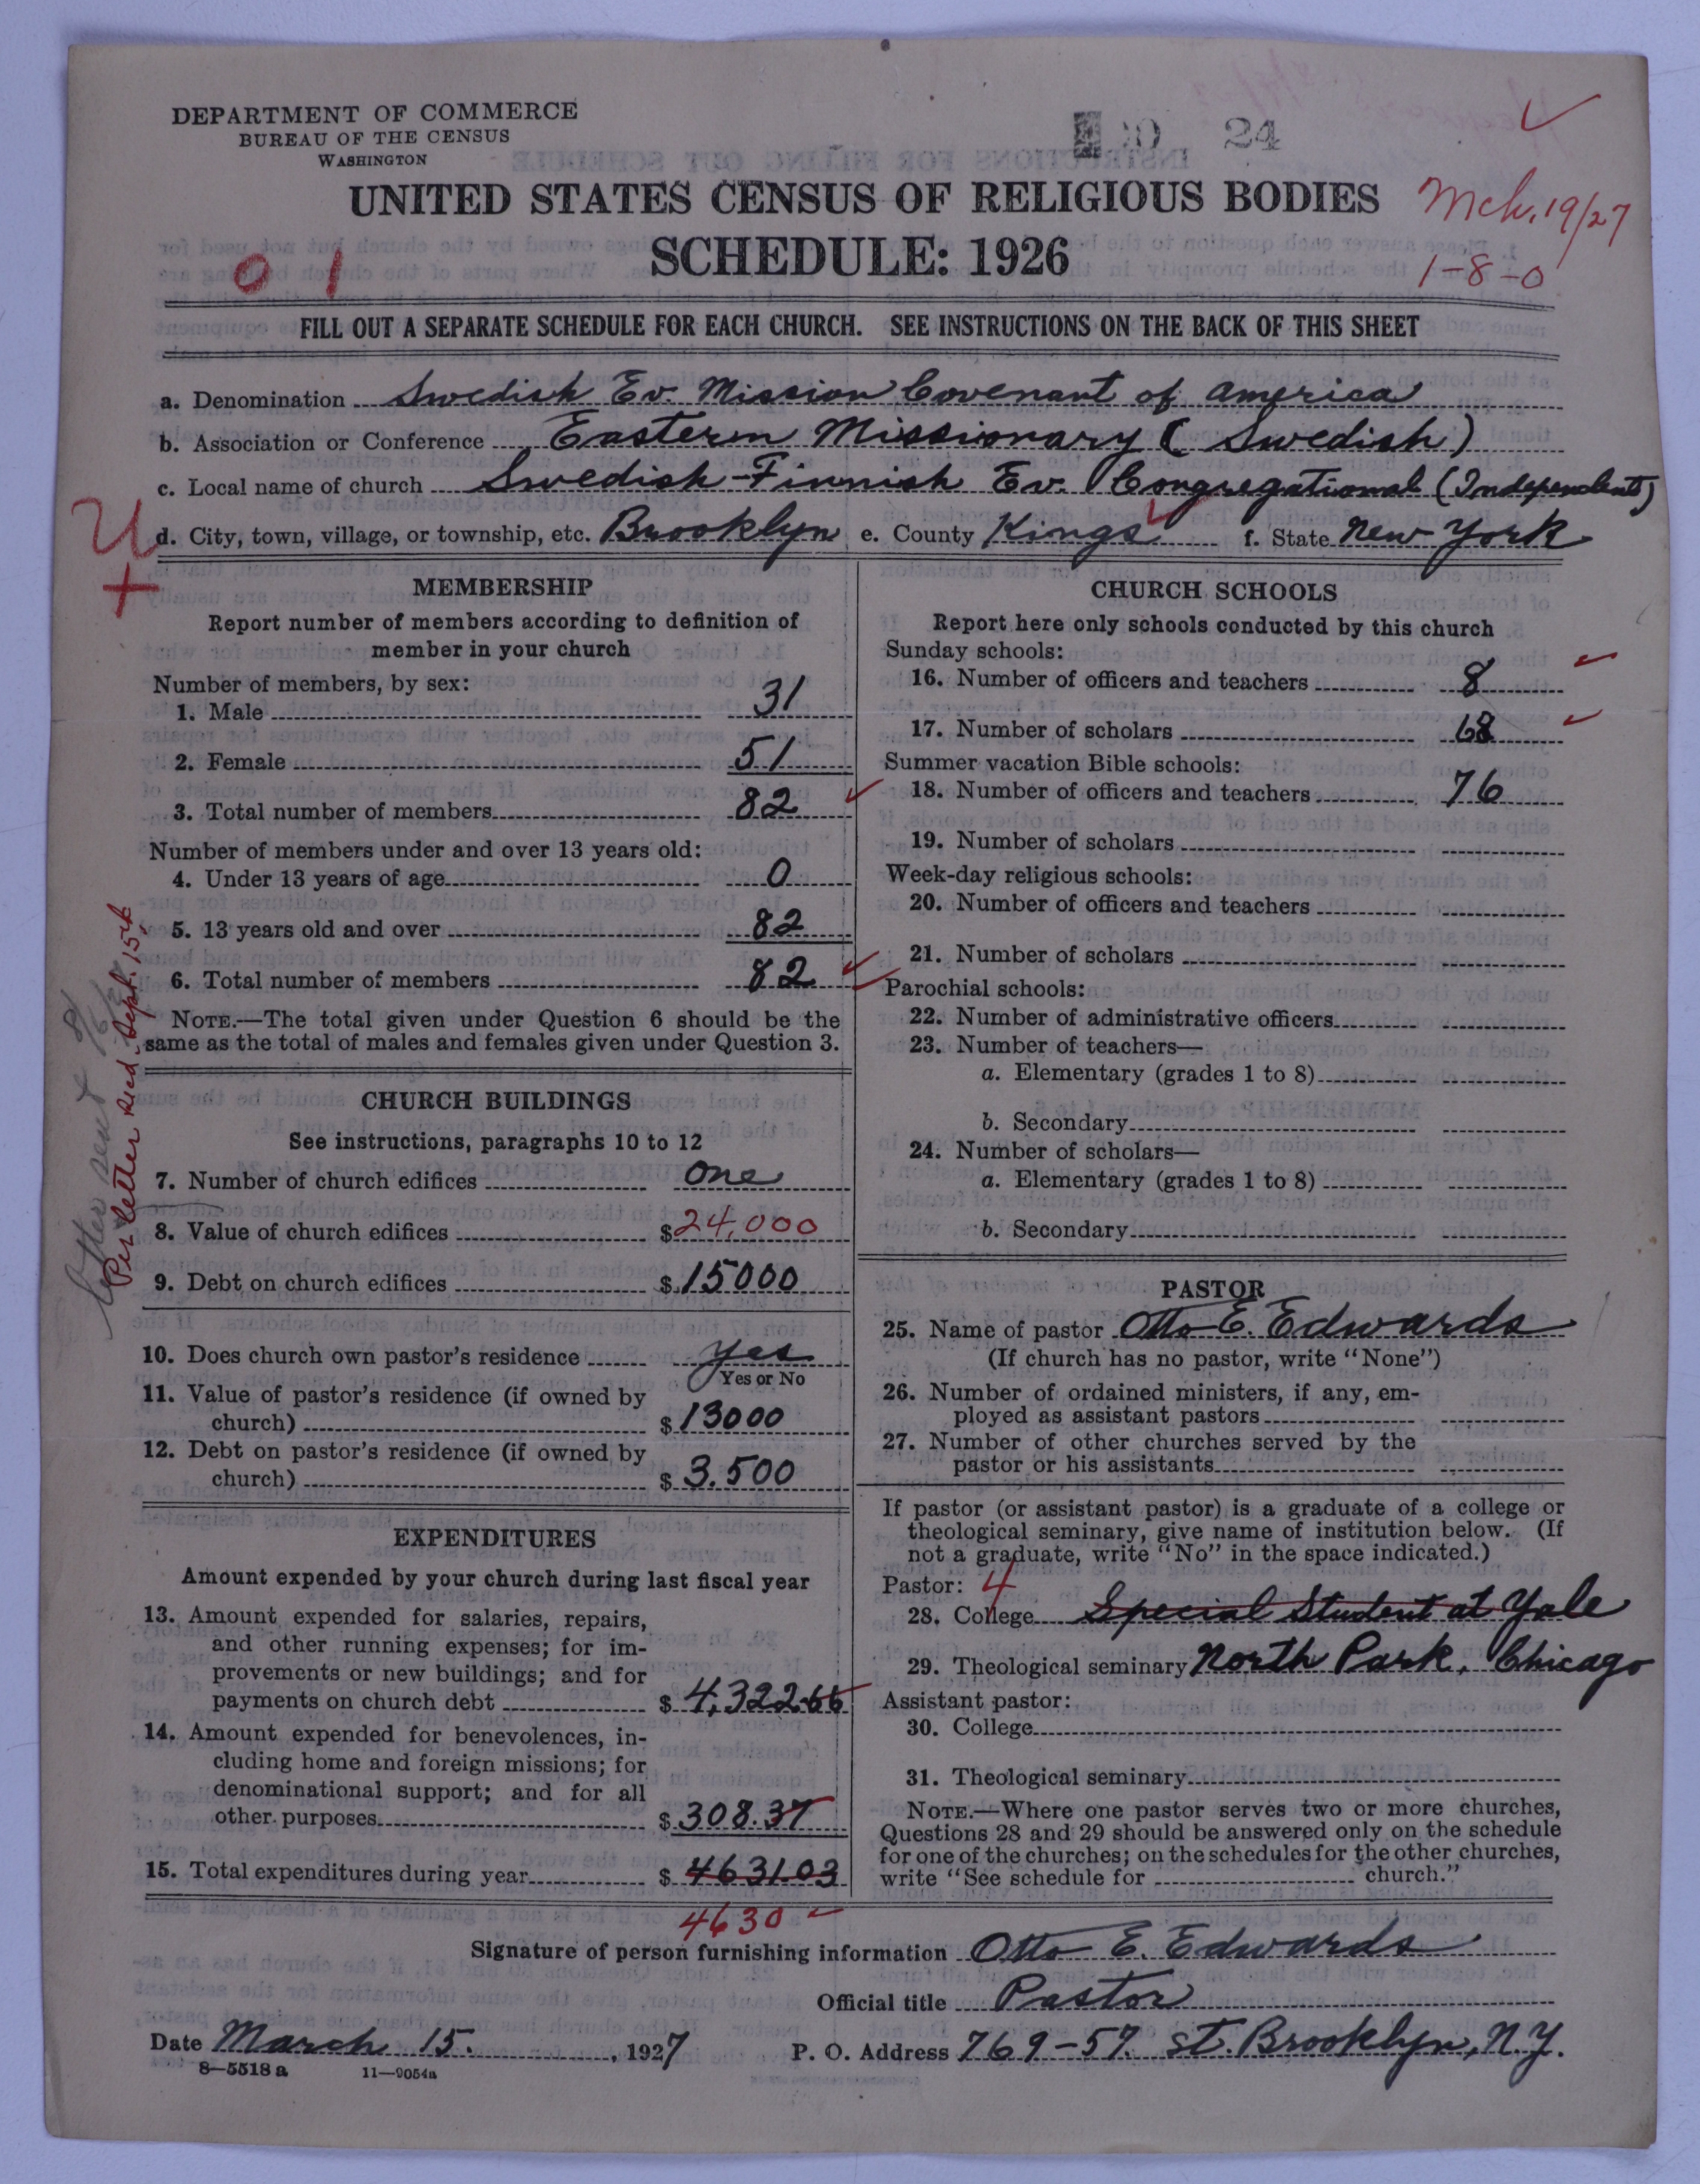 DEPARTMENT OF COMMERCE
BUREAU OF THE CENSUS
WASHINGTON
24
UNITED STATES CENSUS OF RELIGIOUS BODIES
Mch. 19/27
SCHEDULE: 1926
0 1
1-8-0
FILL OUT A SEPARATE SCHEDULE FOR EACH CHURCH. SEE INSTRUCTIONS ON THE BACK OF THIS SHEET
a. Denomination Swedish Ev. Mission Covenant of America
b. Association or Conference Eastern Missionary (Swedish)
c. Local name of church Swedish-Finnish Ev. Congregational (Independent)
d. City, town, village, or township, etc. Brooklyn e. County Kings f. State New York
MEMBERSHIP
Report number of members according to definition of
member in your church
Number of members, by sex:
1. Male 31
2. Female 51
3. Total number of members 82
Number of members under and over 13 years old:
4. Under 13 years of age 0
5. 13 years old and over 82
6. Total number of members 82
NOTE.—The total given under Question 6 should be the
same as the total of males and females given under Question 3.
Per letter recd. Sept. 15th
CHURCH BUILDINGS
See instructions, paragraphs 10 to 12
7. Number of church edifices One
8. Value of church edifices $24,000
9. Debt on church edifices $15000
10. Does church own pastor's residence Yes
Yes or No
11. Value of pastor's residence (if owned by
church) $13000
12. Debt on pastor's residence (if owned by
church) $3.500
EXPENDITURES
Amount expended by your church during last fiscal year
13. Amount expended for salaries, repairs,
and other running expenses; for im-
provements or new buildings; and for
payments on church debt $4,322.66
14. Amount expended for benevolences, in-
cluding home and foreign missions; for
denominational support; and for all
other purposes $308.37
15. Total expenditures during year $4631.03
4630
CHURCH SCHOOLS
Report here only schools conducted by this church
Sunday schools:
16. Number of officers and teachers 8
17. Number of scholars 68
Summer vacation Bible schools:
18. Number of officers and teachers 76
19. Number of scholars
Week-day religious schools:
20. Number of officers and teachers
21. Number of scholars
Parochial schools:
22. Number of administrative officers
23. Number of teachers—
a. Elementary (grades 1 to 8)
b. Secondary
24. Number of scholars—
a. Elementary (grades 1 to 8)
b. Secondary
PASTOR
25. Name of pastor Otto E. Edwards
(If church has no pastor, write "None")
26. Number of ordained ministers, if any, em-
ployed as assistant pastors
27. Number of other churches served by the
pastor or his assistants
If pastor (or assistant pastor) is a graduate of a college or
theological seminary, give name of institution below. (If
not a graduate, write "No" in the space indicated.)
Pastor: 4
28. College Special Student at Yale
29. Theological seminary North Park, Chicago
Assistant pastor:
30. College
31. Theological seminary
NOTE.—Where one pastor serves two or more churches,
Questions 28 and 29 should be answered only on the schedule
for one of the churches; on the schedules for the other churches,
write "See schedule for church."
Signature of person furnishing information Otto E. Edwards
Official title Pastor
Date March 15., 1927 P. O. Address 769-57. St. Brooklyn, N.Y.
8—5518 a 11—9054a